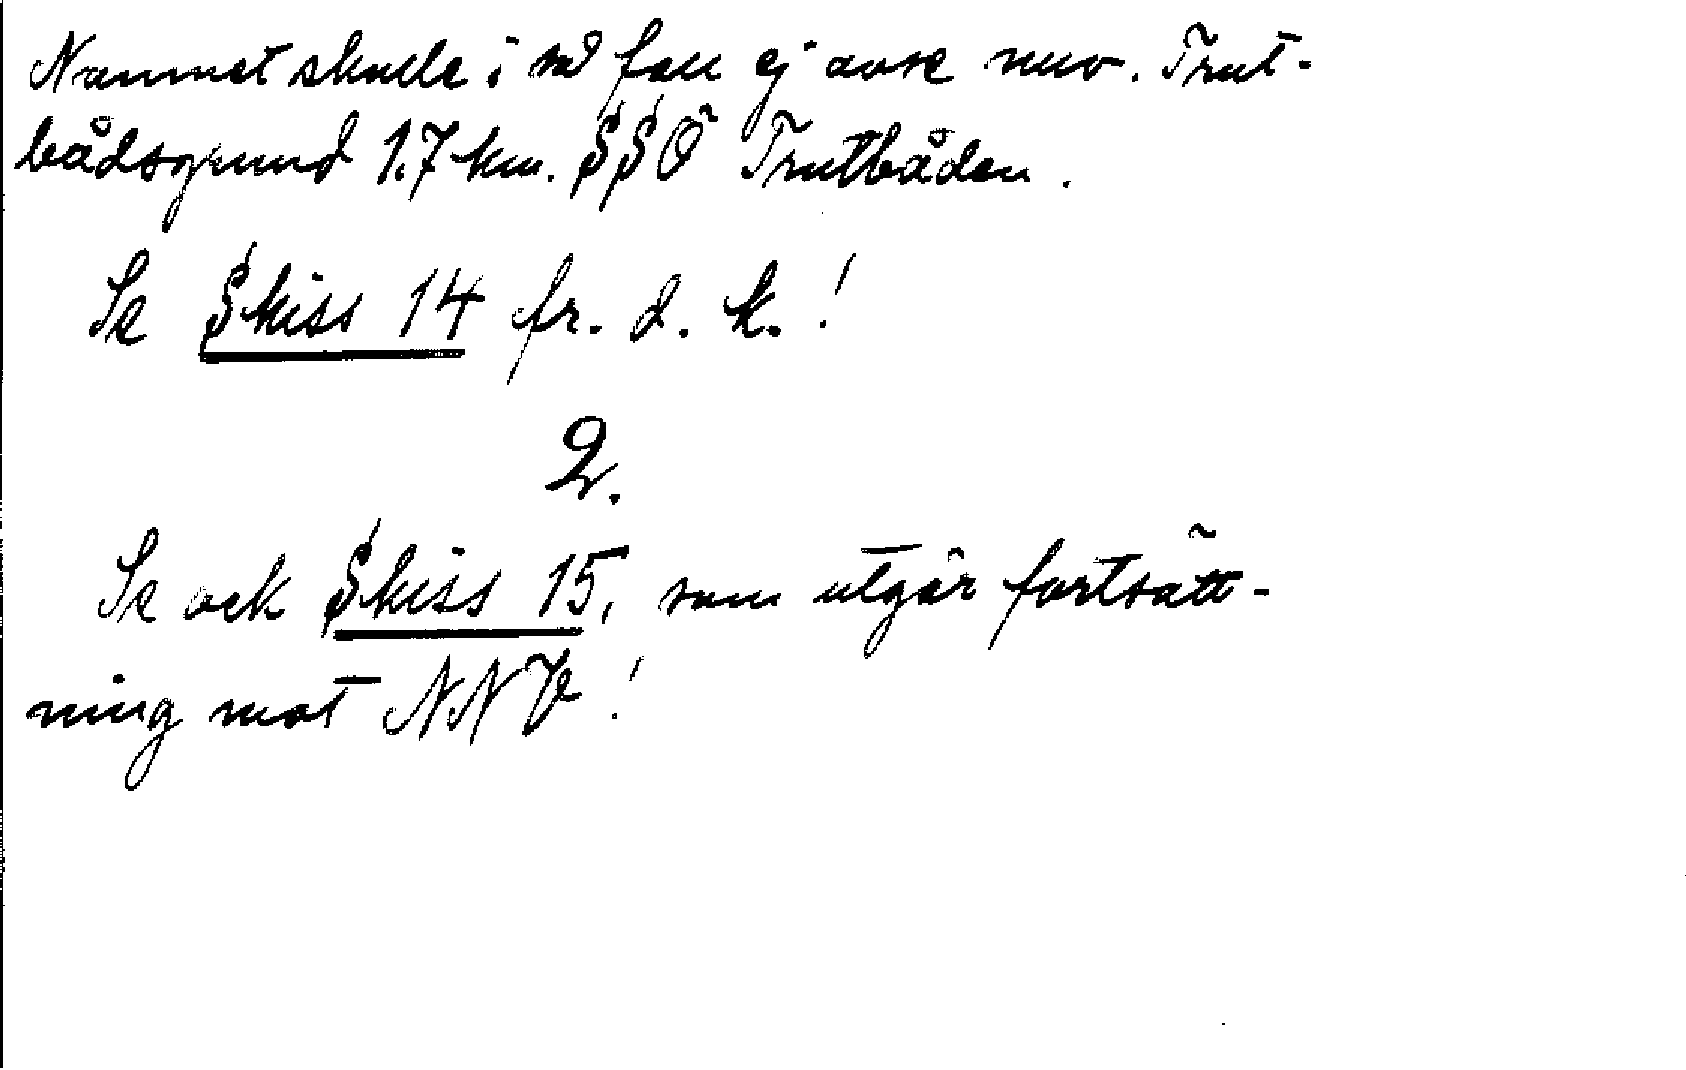 Namnet skulle i så fall ej avse nuv. Trut-
bådsgrund 1.7 km. SSÖ Trutbåden.
Se Skiss 14 fr. d. k.!
2.
Se ock Skiss 15, som utgör fortsätt-
ning mot NNV!